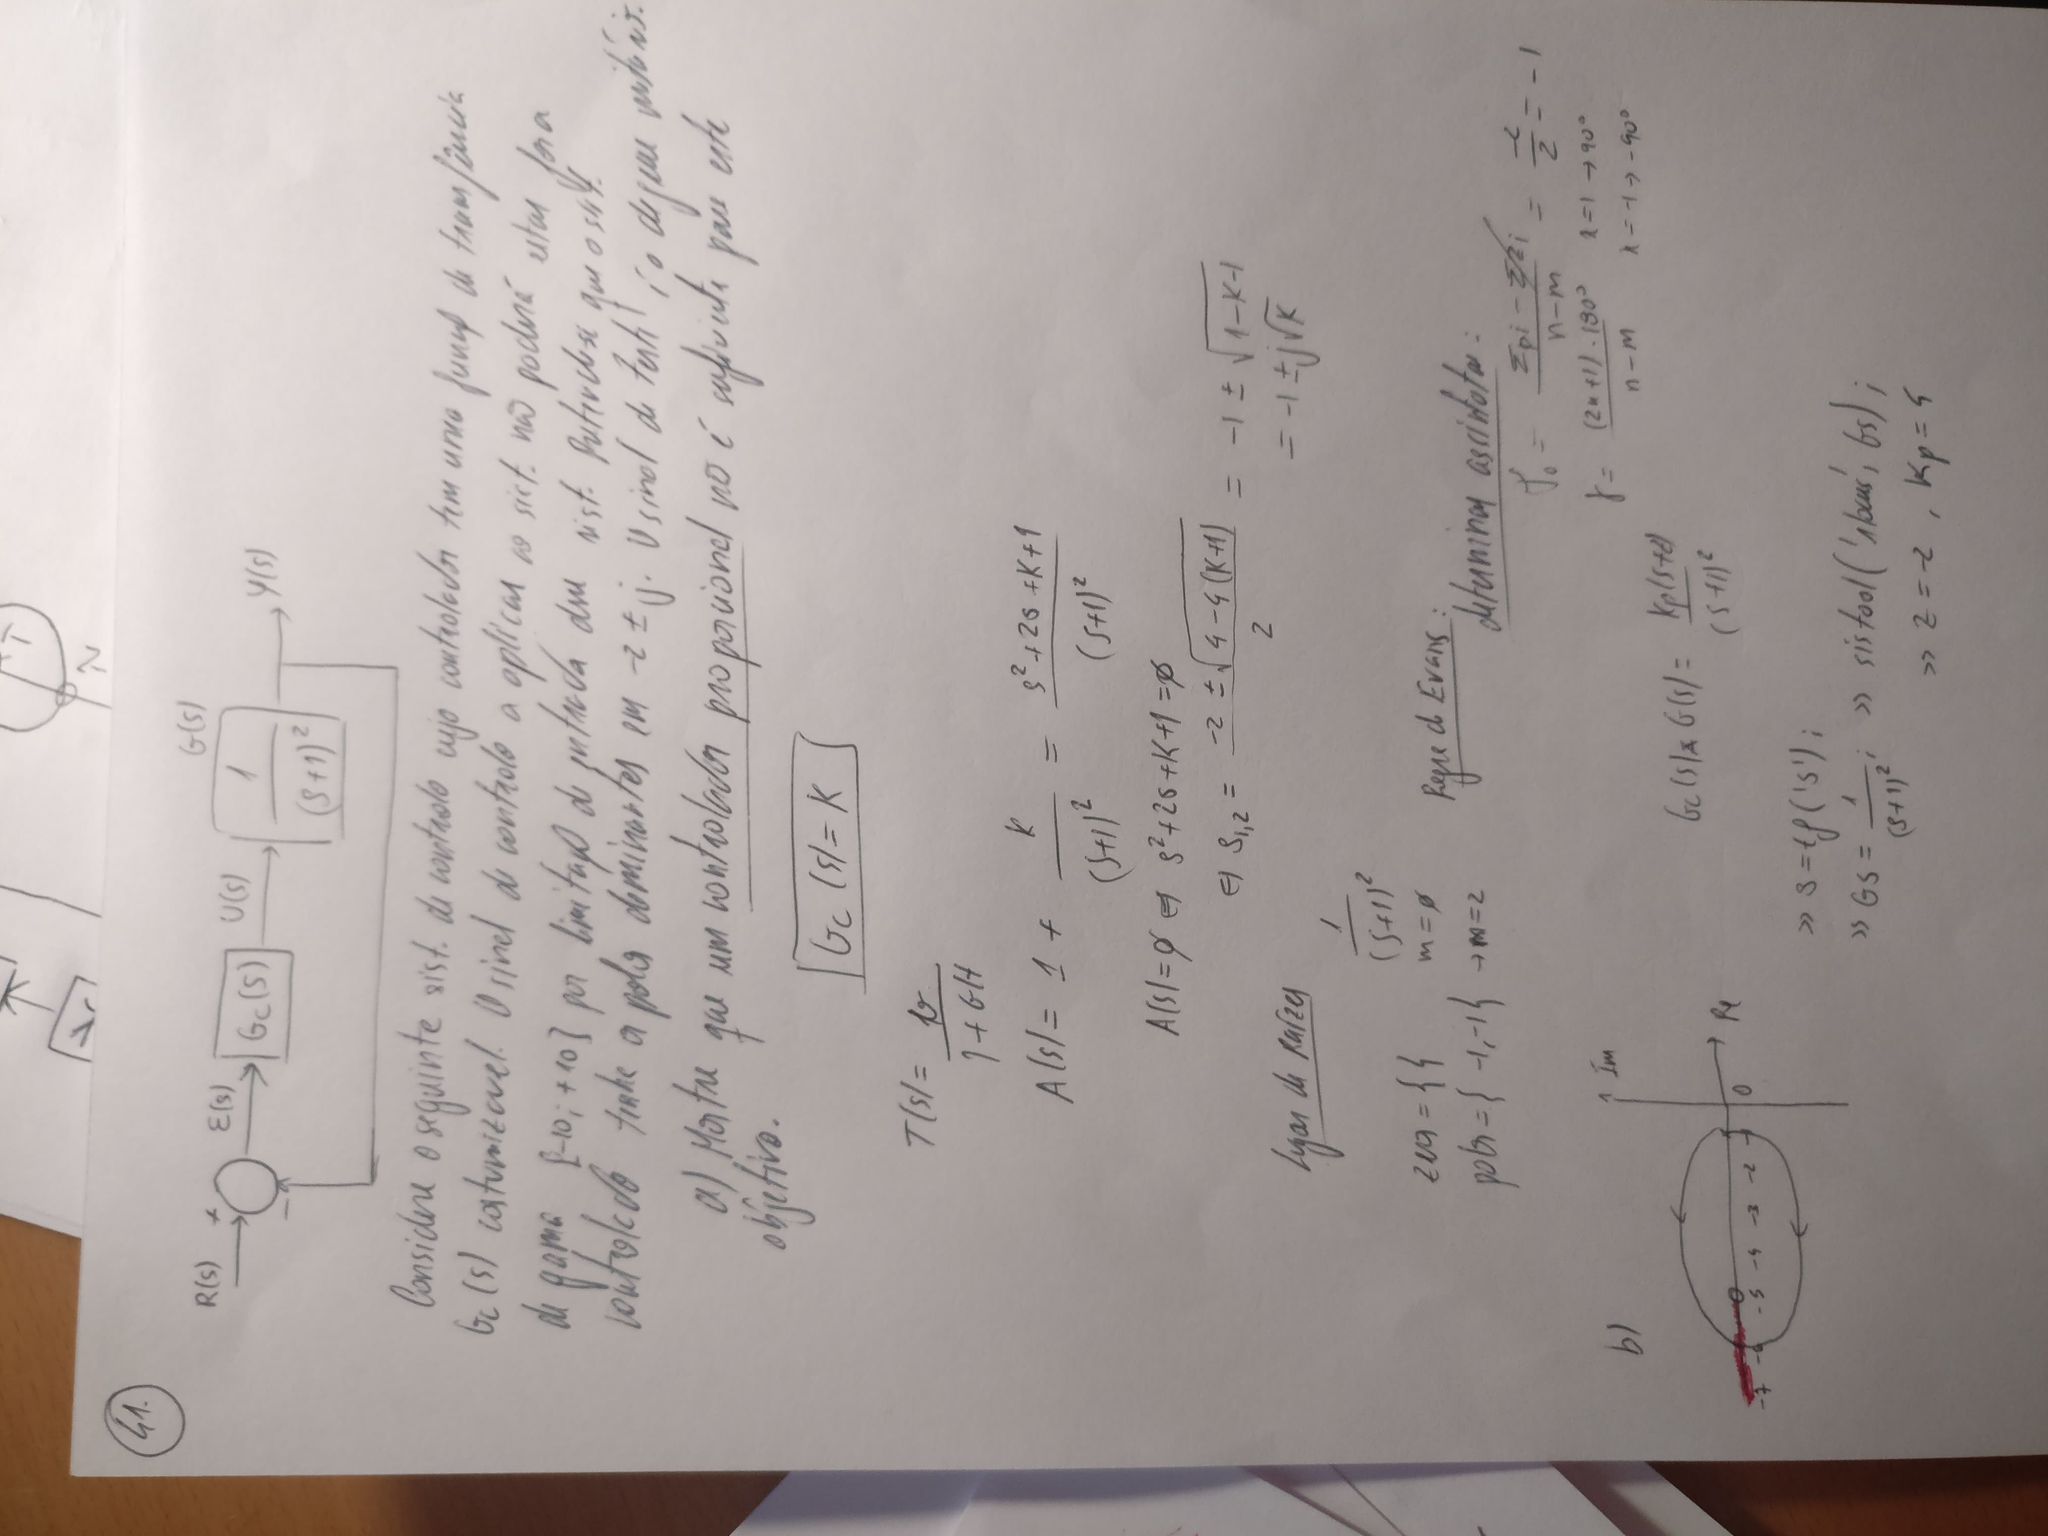 Vr
T
N
41.
R(s) + E(s) Gc(s) U(s) G(s) 1/(s+1)² Y(s)
−
Considere o seguinte sist. de controlo cujo controlador tem uma funçº de transfência
Gc(s) costumizavel. O sinal de controlo a aplicar ao sist. não poderá estar fora
de gama [-10; +10] por limitaçº de entrada sist. que o sist.
controlado tenha os polos dominantes em -2 ± j. O sinal de é o degrau unitário.
a) Mostre que um controlador proporcional nõ é suficiente para este
objetivo.
Gc(s) = K
T(s) = G/(1+GH)
A(s) = 1 + K/(s+1)² = (s²+2s+K+1)/(s+1)²
A(s)=0 ⇔ s²+2s+K+1=0
⇔ S1,2 = (-2 ± √(4-4(K+1)))/2 = -1 ± √(1-K-1)
= -1 ± j√K
Lugar de Raízes
1/(s+1)²
zeros = { } m=0
polos = { -1,-1 } → n=2
Regra de Evans:
determinar assintotas:
σ₀ = (Σpi - Σzi)/(n-m) = -2/2 = -1
γ = ((2k+1).180°)/(n-m) k=1 → 90°
k=-1 → -90°
b)
Im
Re
-7 -6 -5 -4 -3 -2 -1 0
Gc(s) × G(s) = Kp(s+z)/(s+1)²
>> s=tf('s');
>> Gs = 1/(s+1)²; >> sistool('rlocus', Gs);
>> z=-2, Kp=4